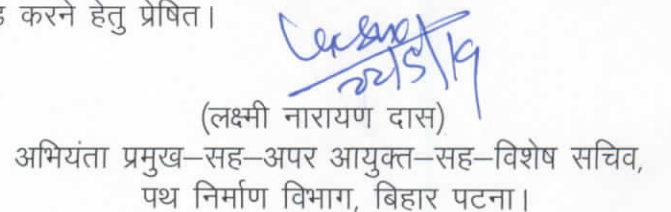 करने हेतु प्रेषित।
22/5/19
(लक्ष्मी नारायण दास)
अभियंता प्रमुख–सह–अपर आयुक्त–सह–विशेष सचिव,
पथ निर्माण विभाग, बिहार पटना।